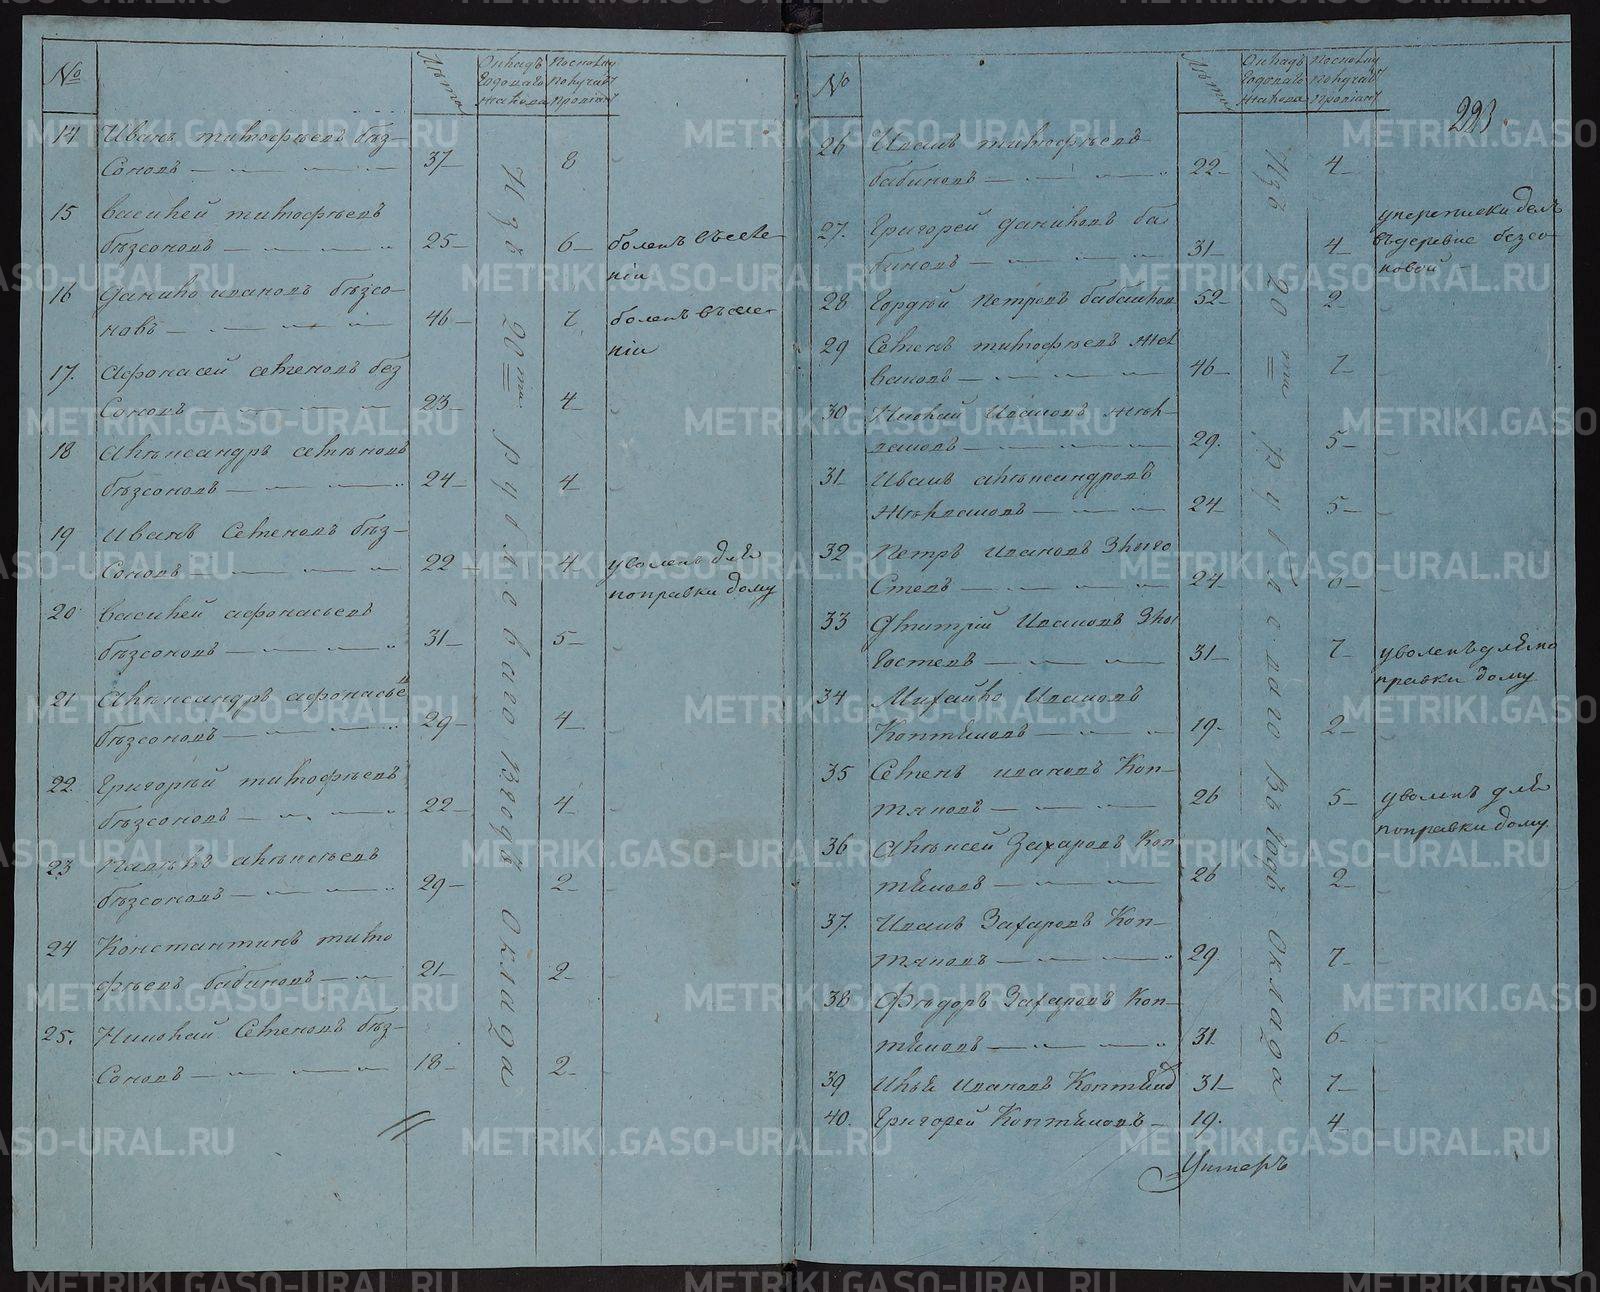 №
Лѣта
Окладъ
Годоваго
Жалова
Поскольку
Получаетъ
Провіант
14 Иванъ тимофѣевъ бѣз-
соновъ 37 8
15 Василей тимофѣевъ
бѣзсоновъ 25 6 боленъ въселе-
ніи
16 Данило ивановъ бѣзсо-
новъ 46 7 боленъ въселе-
ніи
17. Афонасей семеновъ без
соновъ 23 4
18 Алѣксандръ семѣновъ
бѣзсоновъ 24 4
19 Иванъ Семеновъ бѣз-
соновъ 22 4 уволенъ для
поправки дому
20 Василей афонасьевъ
бѣзсоновъ 31 5
21 Алѣксандръ афонасье
бѣзсоновъ 29 4
22 Григорѣй тимофѣевъ
бѣзсоновъ 22 4
23 Павѣлъ алѣксѣевъ
бѣзсоновъ 29 2
24 Константинъ тимо
фѣевъ бабиновъ 21 2
25. Николай Семеновъ бѣз-
соновъ 18 2
Изъ 20ти рублеваго Въгодъ Оклада
№
Лѣта
Окладъ
Годоваго
Жалова
Поскольку
Получаетъ
Провіант
223
26 Иванъ тимофѣевъ
бабиновъ 22 4
27. Григорей даниловъ ба
биновъ 31 4 упереписки делъ
въдеревне безсо-
новой
28 Гордѣй Петровъ бабашков 52 2
29 Семенъ тимофѣевъ жел
вановъ 46 7
30 Николай Ивановъ жѣл-
вановъ 29. 5
31 Иванъ алѣксандровъ
жѣлвановъ 24 5
32 Петръ Ивановъ Злыго
стевъ 24
33 Дмитрій Ивановъ Злы
гостевъ 31 7 уволенъ для по
правки дому
34 Михайло Ивановъ
Коптяновъ 19. 2
35 Семенъ ивановъ Коп-
тяновъ 26 5 уволенъ для
поправки дому
36 Алѣксей Захаровъ Коп
тяновъ 26 2
37. Иванъ Захаровъ Коп-
тяновъ 29 7
38 Фѣдоръ Захаровъ Коп-
тяновъ 31 6
39 Илья Ивановъ Коптянов 31 7
40. Григорей Коптяновъ 19. 4
Изъ 20ти Рублеваго Въгодъ Оклада
Унтеръ
METRIKI.GASO-URAL.RU